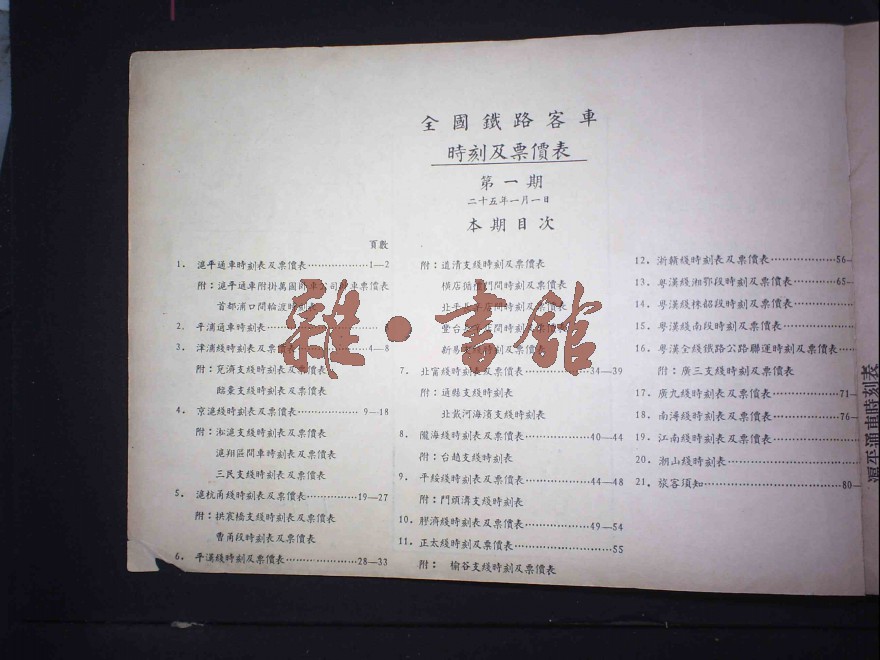 全國鐵路客車
時刻及票價表
第一期
二十五年一月一日
本期目次
頁數
1. 滬平通車時刻表及票價表 1—2
附：滬平通車附掛萬國 車公司 車票價表
首都浦口間輪渡時刻表
2. 平浦通車時刻表
3. 津浦綫時刻表及票價表 4—8
附：兗濟支綫時刻表及票價表
臨棗支綫時刻表及票價表
4. 京滬綫時刻表及票價表 9—18
附：淞滬支綫時刻表及票價表
滬翔區間車時刻表及票價表
三民支綫時刻表及票價表
5. 滬杭甬綫時刻表及票價表 19—27
附：拱宸橋支綫時刻表及票價表
曹甬段時刻表及票價表
6. 平漢綫時刻及票價表 28—33
附：道清支綫時刻及票價表
橫店 間時刻及票價表
北平 店間時刻及票價表
豐台 店間時刻及票價表
新易支 時刻及票價表
7. 北甯綫時刻及票價表 34—39
附：通縣支綫時刻表
北戴河海濱支綫時刻表
8. 隴海綫時刻表及票價表 40—44
附：台趙支綫時刻表
9. 平綏綫時刻及票價表 44—48
附：門頭溝支綫時刻表
10. 膠濟綫時刻及票價表 49—54
11. 正太綫時刻及票價表 55
附：榆谷支綫時刻及票價表
12. 浙贛綫時刻表及票價表 56—
13. 粵漢綫湘鄂段時刻及票價表 65—
14. 粵漢綫株韶段時刻及票價表
15. 粵漢綫南段時刻及票價表
16. 粵漢全綫鐵路公路聯運時刻及票價表
附：廣三支綫時刻及票價表
17. 廣九綫時刻及票價表 71—
18. 南潯綫時刻及票價表 76—
19. 江南綫時刻及票價表
20. 潮汕綫時刻表
21. 旅客須知 80—
滬平通車時刻表
雜·書館